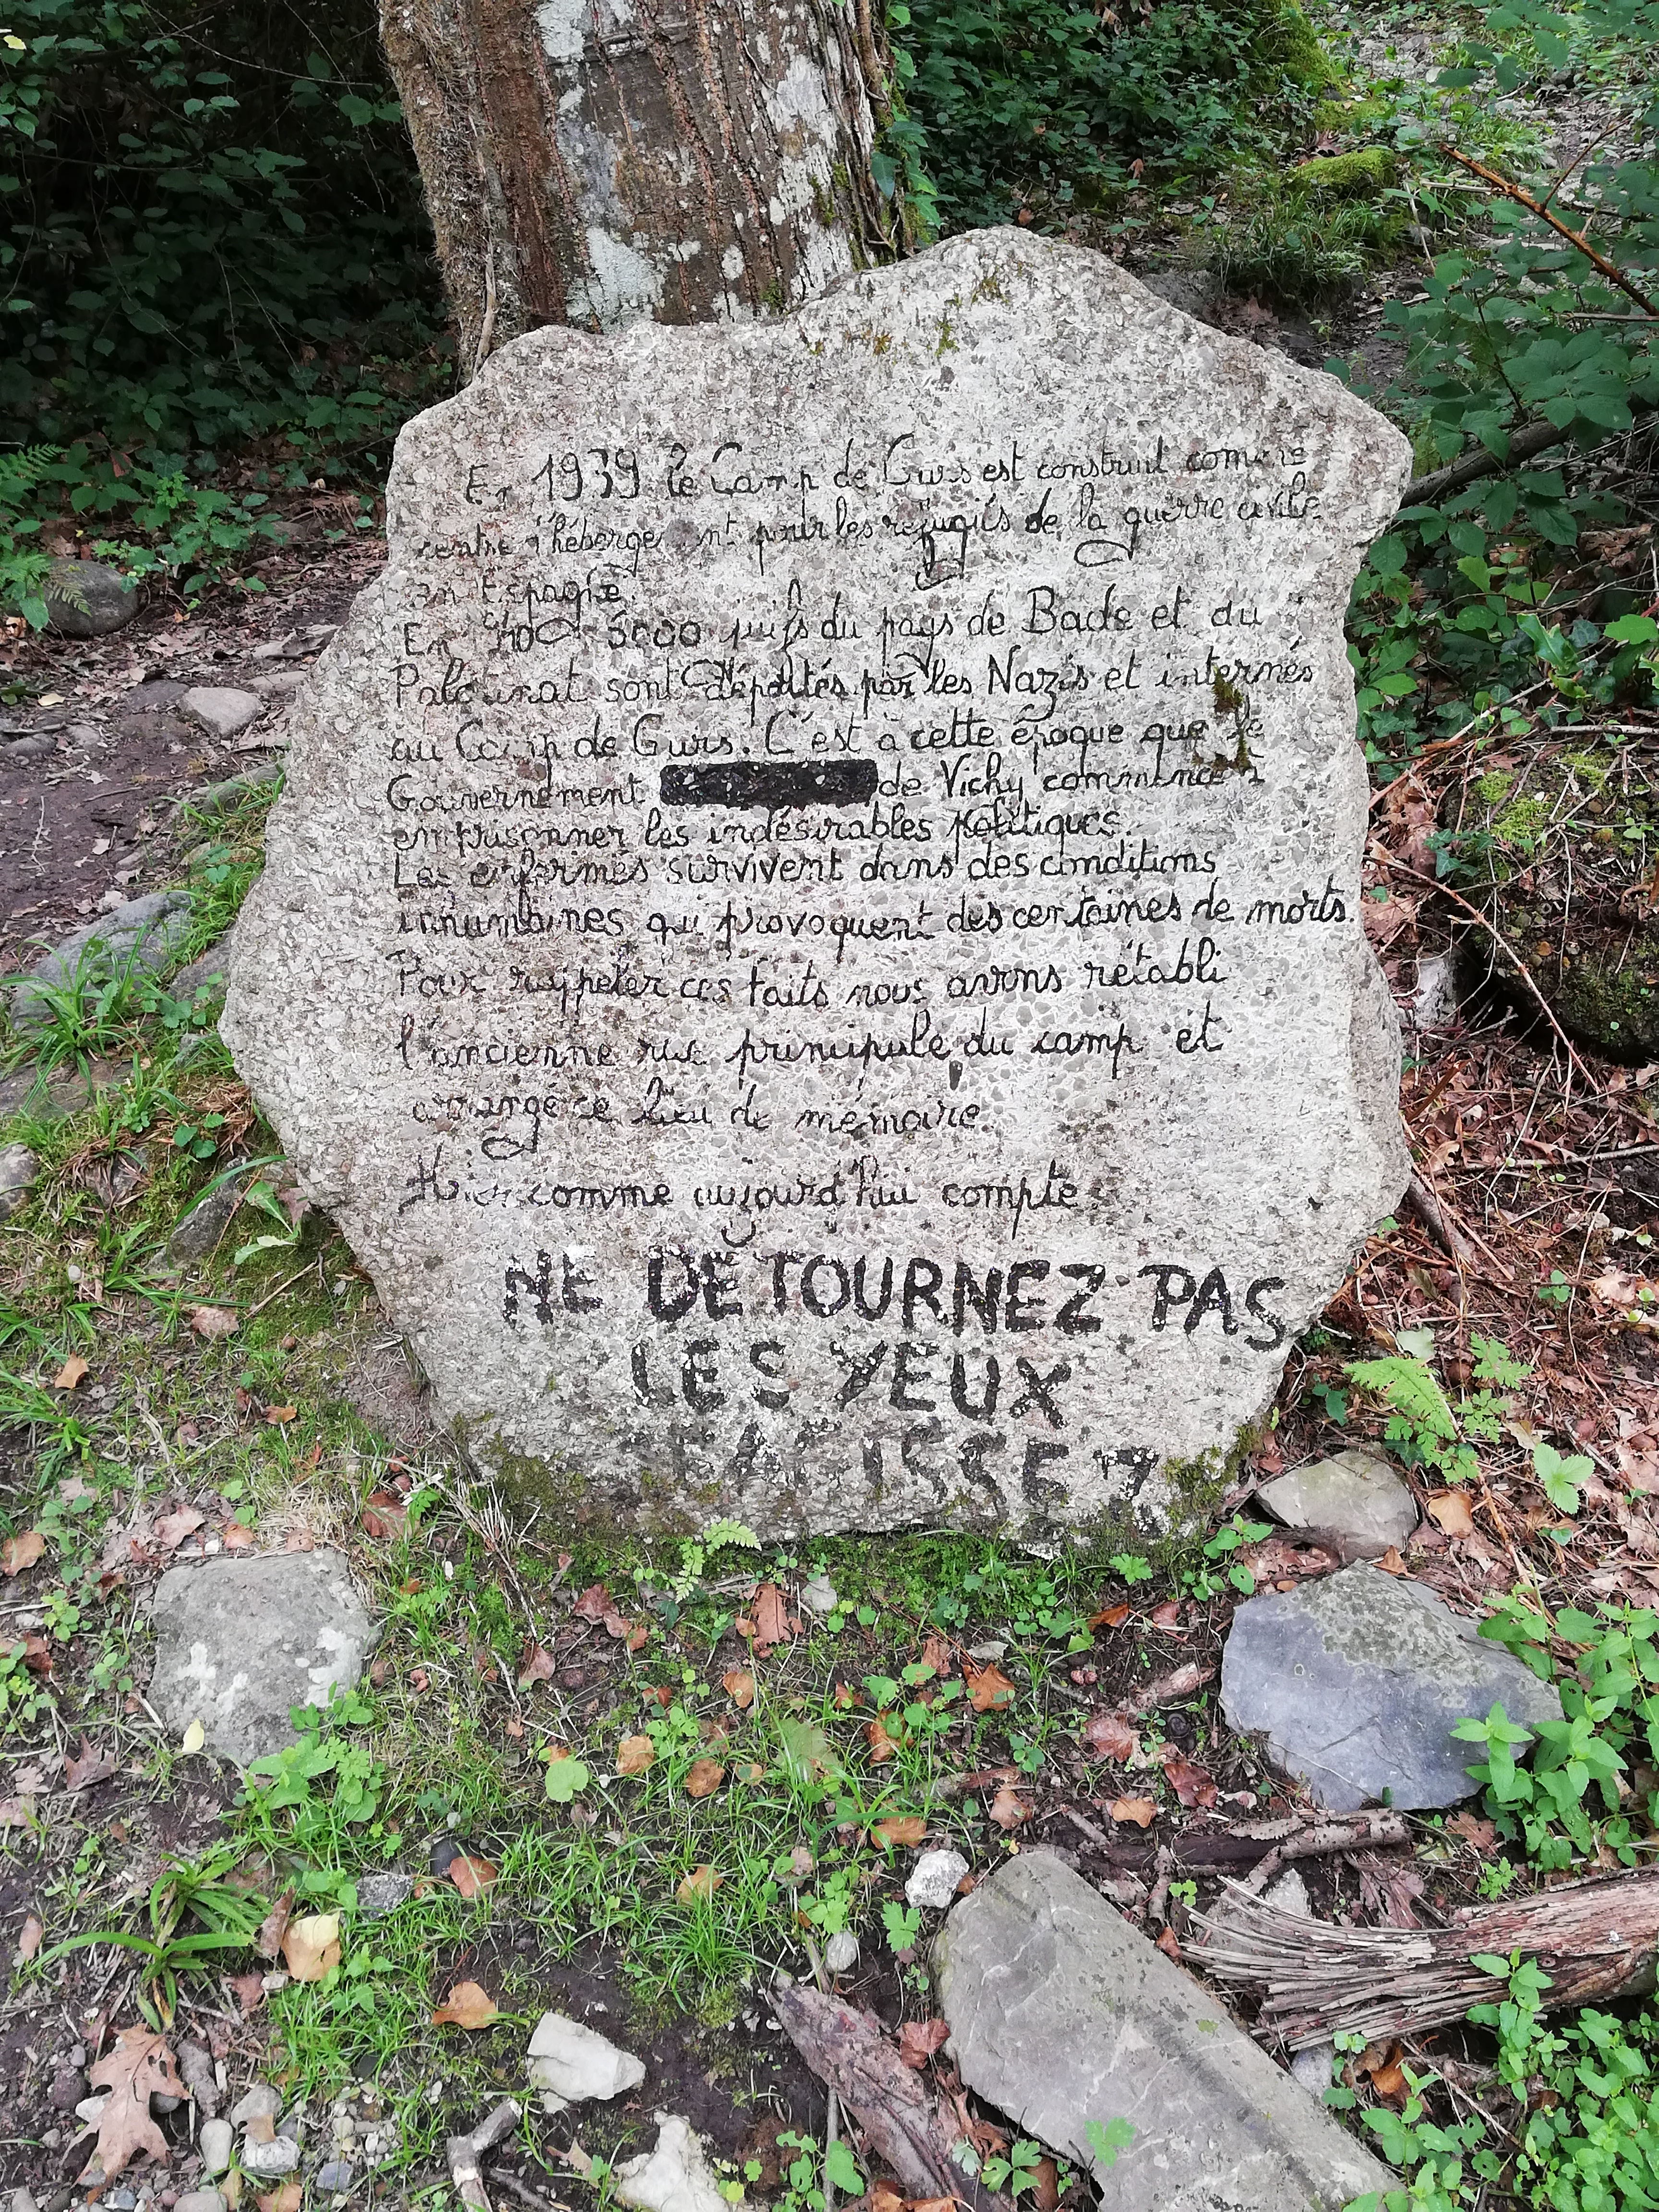 En 1939 le Camp de Gurs est construit comme
centre d'hébergement pour les réfugiés de la guerre civile
en Espagne.
En 5000 juifs du pays de Bade et du
Palatinat sont déportés par les Nazis et internés
au Camp de Gurs. C'est à cette époque que le
Gouvernement de Vichy commence à
emprisonner les indésirables politiques.
Les enfermés survivent dans des conditions
inhumaines qui provoquent des centaines de morts.
Pour rappeler ces faits nous avons rétabli
l'ancienne rue principale du camp et
arrangé ce lieu de mémoire.
Hier comme aujourd'hui compte:
NE DETOURNEZ PAS
LES YEUX
AGISSEZ